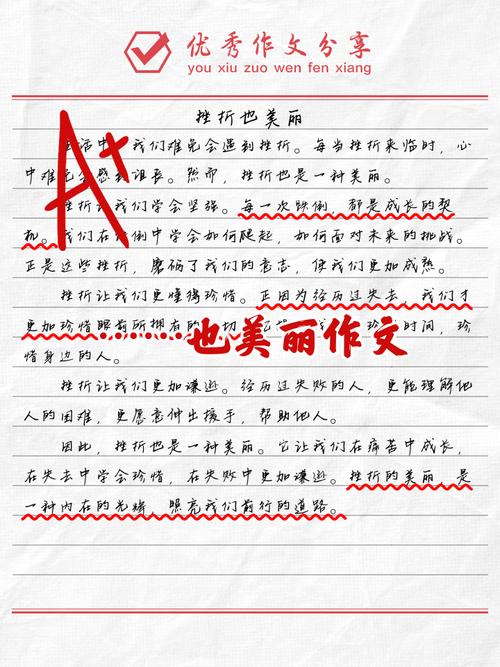 优秀作文分享
you xiu zuo wen fen xiang
挫折也美丽
A+
活中，我们难免会遇到挫折。每当挫折来临时，心
中难免会感到沮丧。然而，挫折也是一种美丽。
挫折 我们学会坚强。每一次跌倒，都是成长的契
机。我们在 倒中学会如何爬起，如何面对未来的挑战。
正是这些挫折，磨砺了我们的意志，使我们更加成熟。
挫折让我们更懂得珍惜。正因为经历过失去，我们才
更加珍惜眼前所拥有的 切 时间，珍
惜身边的人。
……也美丽作文
挫折让我们更加谦逊。经历过失败的人，更能理解他
人的困难，更愿意伸出援手，帮助他人。
因此，挫折也是一种美丽。它让我们在痛苦中成长，
在失去中学会珍惜，在失败中更加谦逊。挫折的美丽，是
一种内在的光辉，照亮我们前行的道路。